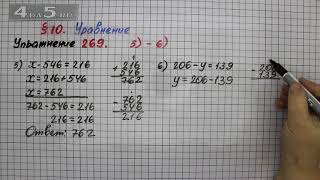 4DaR5.ru
§10. Уравнение
Упражнение 269. 5) - 6)
5) x - 546 = 216
x = 216 + 546
x = 762
762 - 546 = 216
216 = 216
Ответ: 762
+ 216
546
762
- 762
546
216
6) 206 - y = 139
y = 206 - 139
- 206
139